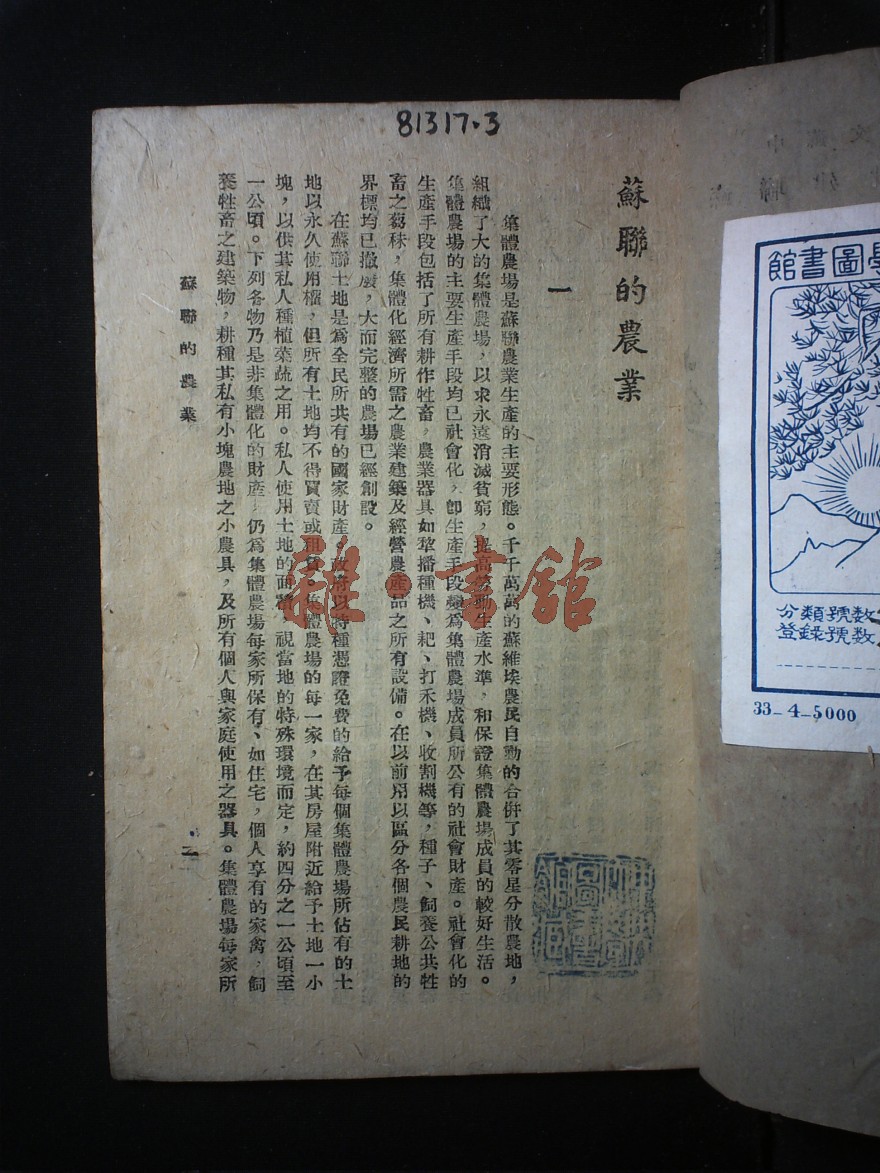 81317.3
蘇聯的農業
一
集體農場是蘇聯農業生產的主要形態。千千萬萬的蘇維埃農民自動的合併了其零星分散農地，
組織了大的集體農場，以求永遠消滅貧窮，提高勞動生產水準，和保證集體農場成員的較好生活。
集體農場的主要生產手段均已社會化，卽生產手段變爲集體農場成員所公有的社會財產。社會化的
生產手段包括了所有耕作牲畜，農業器具如犂播種機、耙、打禾機、收割機等，種子、飼養公共牲
畜之芻秣，集體化經濟所需之農業建築及經營農產品之所有設備。在以前用以區分各個農民耕地的
界標均已撤廢，大而完整的農場已經創設。
在蘇聯土地是爲全民所共有的國家財產。政府以特種憑證免費的給予每個集體農場所佔有的土
地以永久使用權，但所有土地均不得買賣或租賃。集體農場的每一家，在其房屋附近給予土地一小
塊，以供其私人種植菜蔬之用。私人使用土地的面積，視當地的特殊環境而定，約四分之一公頃至
一公頃。下列各物乃是非集體化的財產，仍爲集體農場每家所保有、如住宅，個人享有的家禽，飼
養牲畜之建築物，耕種其私有小塊農地之小農具，及所有個人與家庭使用之器具。集體農場每家所
蘇聯的農業
雜·書館
學圖書館
分類號數
登錄號數
33-4-5000